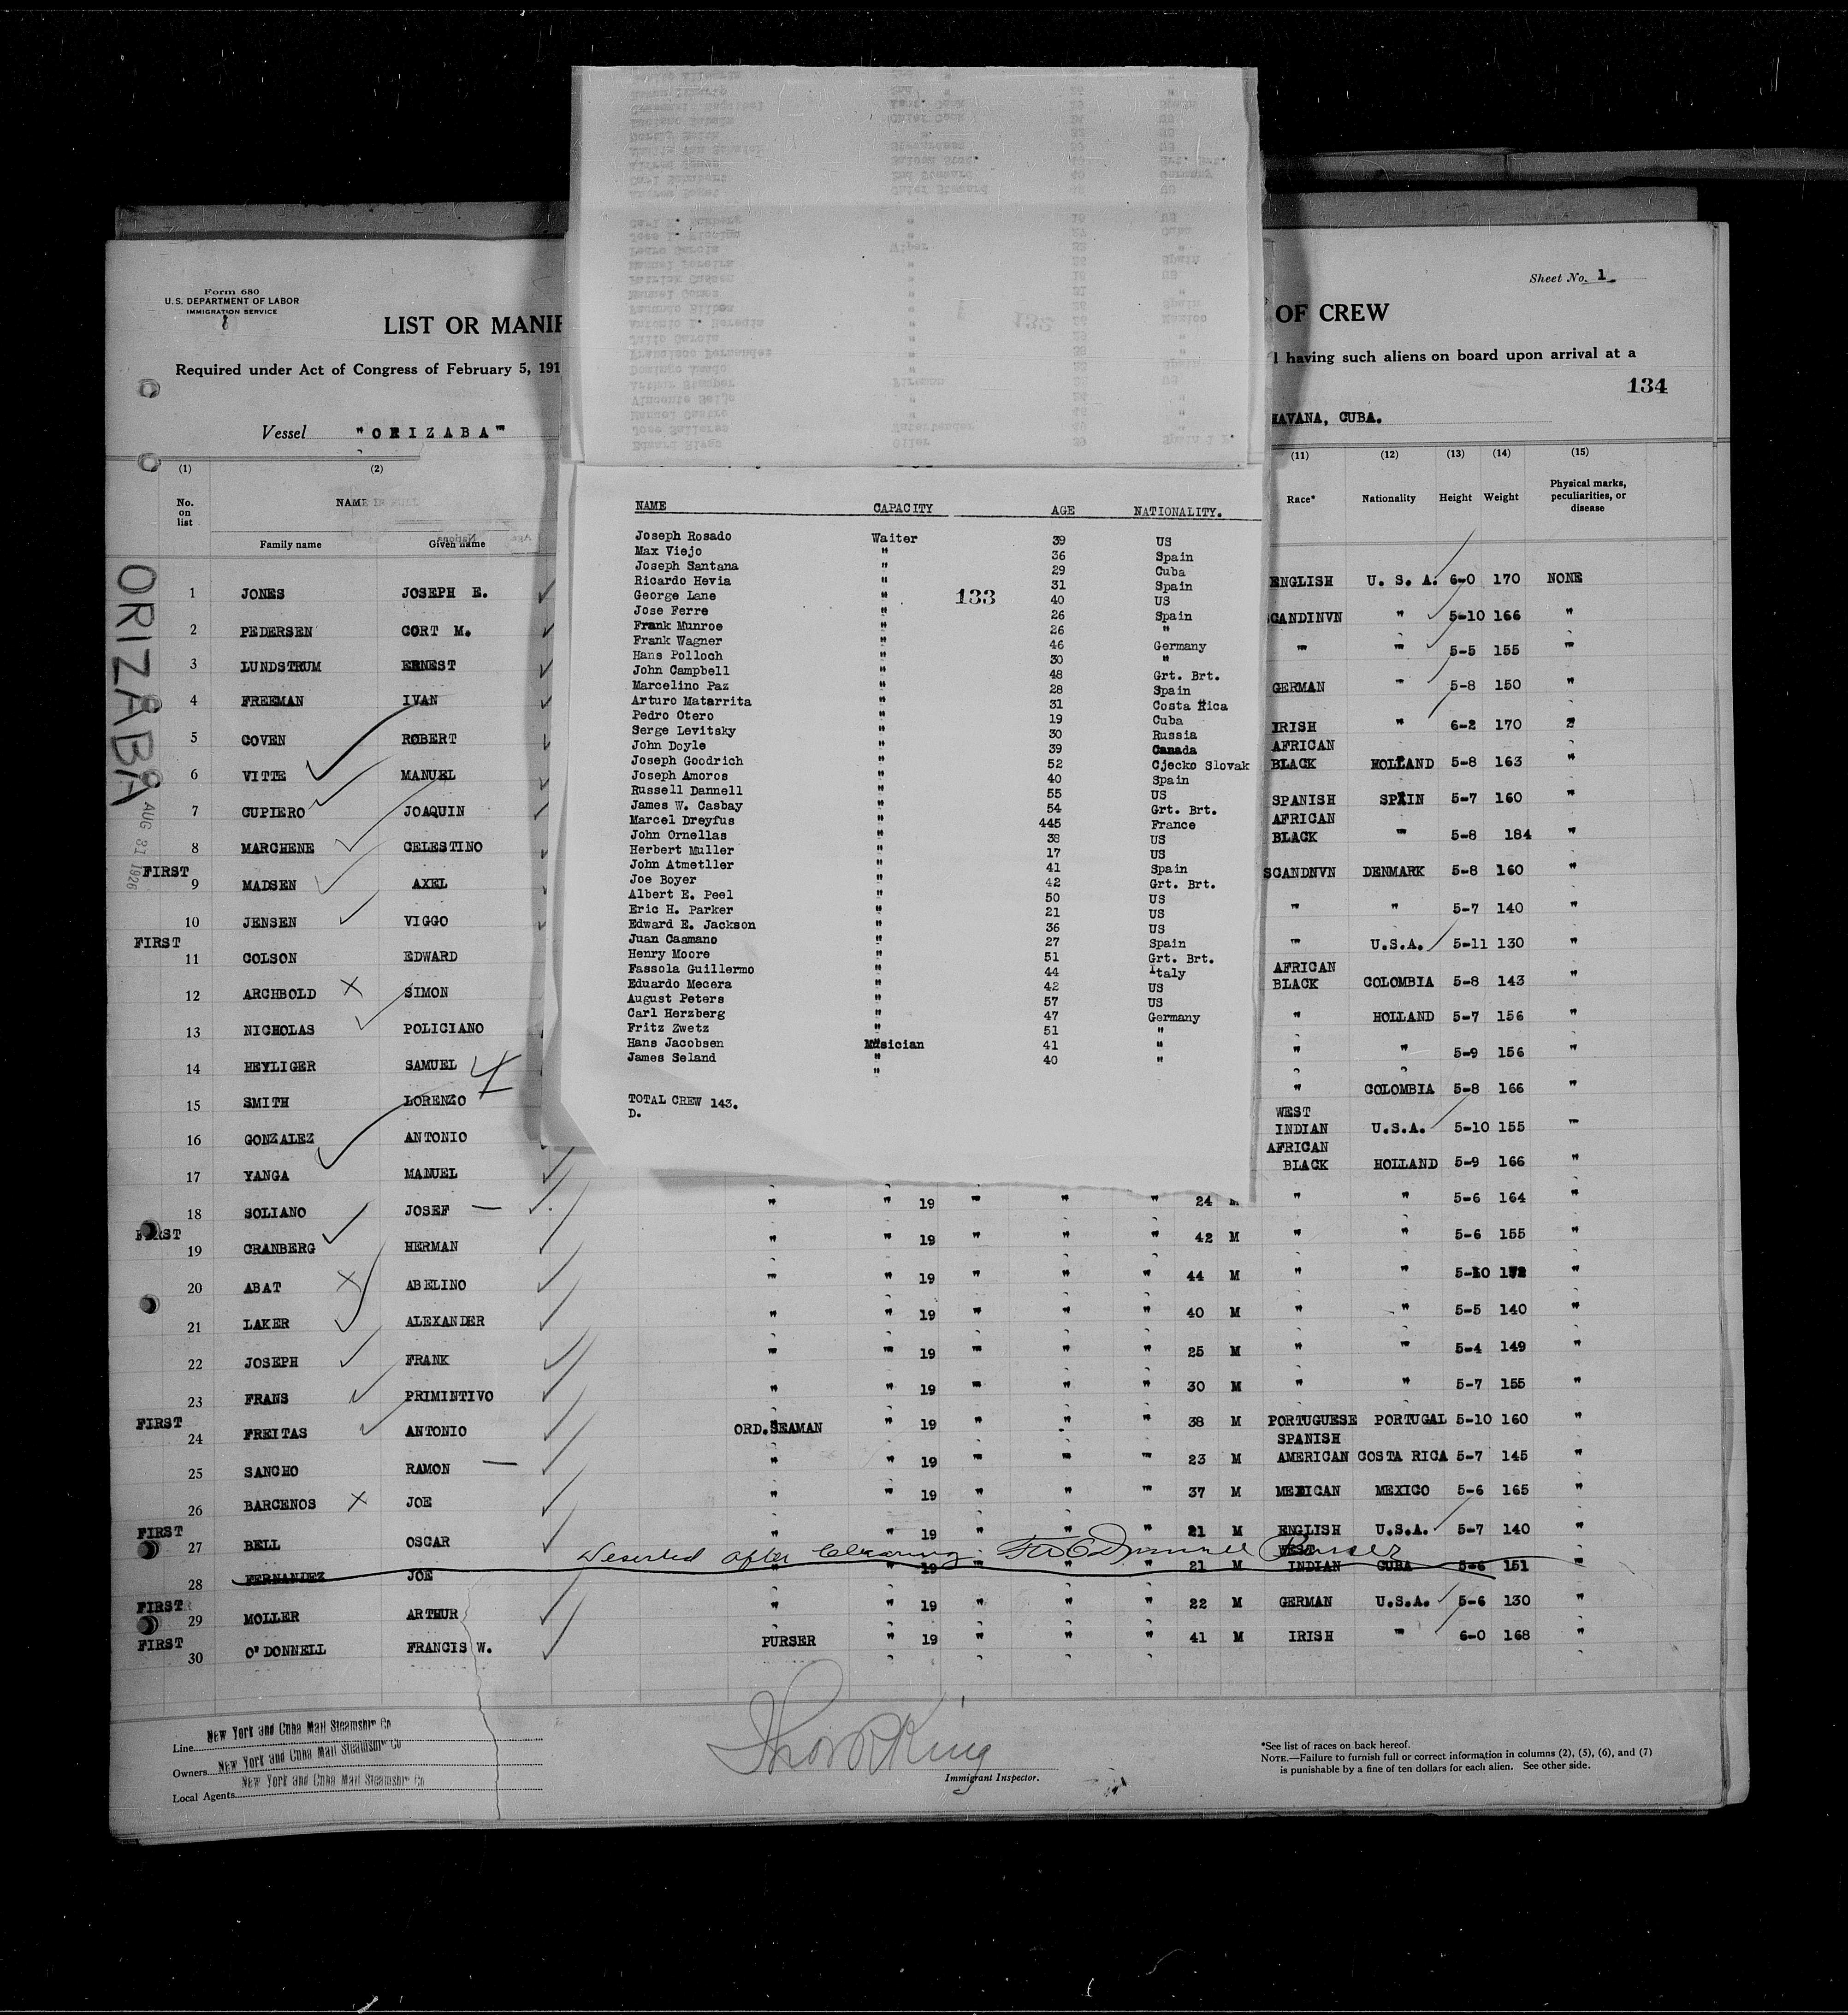 Form 680
U.S. DEPARTMENT OF LABOR
IMMIGRATION SERVICE
Sheet No. 1
LIST OR MANIF
OF CREW
Required under Act of Congress of February 5, 191
l having such aliens on board upon arrival at a
134
Vessel "ORIZABA"
HAVANA, CUBA.
ORIZABA
AUG 31 1926
(1) (2) (11) (12) (13) (14) (15)
No. on list NAME IN FULL Race* Nationality Height Weight Physical marks, peculiarities, or disease
Family name Given name
NAME CAPACITY AGE NATIONALITY.
Joseph Rosado Waiter 39 US
Max Viejo " 36 Spain
Joseph Santana " 29 Cuba
Ricardo Hevia " 31 Spain
George Lane " 133 40 US
Jose Ferre " 26 Spain
Frank Munroe " 26 "
Frank Wagner " 46 Germany
Hans Polloch " 30 "
John Campbell " 48 Grt. Brt.
Marcelino Paz " 28 Spain
Arturo Matarrita " 31 Costa Rica
Pedro Otero " 19 Cuba
Serge Levitsky " 30 Russia
John Doyle " 39 Canada
Joseph Goodrich " 52 Cjecko Slovak
Joseph Amoros " 40 Spain
Russell Dannell " 55 US
James W. Casbay " 54 Grt. Brt.
Marcel Dreyfus " 445 France
John Ornellas " 38 US
Herbert Muller " 17 US
John Atmetller " 41 Spain
Joe Boyer " 42 Grt. Brt.
Albert E. Peel " 50 US
Eric H. Parker " 21 US
Edward E. Jackson " 36 US
Juan Caamano " 27 Spain
Henry Moore " 51 Grt. Brt.
Fassola Guillermo " 44 Italy
Eduardo Mecera " 42 US
August Peters " 57 US
Carl Herzberg " 47 Germany
Fritz Zwetz " 51 "
Hans Jacobsen Musician 41 "
James Seland " 40 "
"
TOTAL CREW 143.
D.
1 JONES JOSEPH E. ENGLISH U. S. A. 6-0 170 NONE
2 PEDERSEN CORT M. SCANDINVN " 5-10 166 "
3 LUNDSTRUM ERNEST " " 5-5 155 "
4 FREEMAN IVAN GERMAN " 5-8 150 "
5 COVEN ROBERT IRISH " 6-2 170 "
6 VITTE MANUEL AFRICAN BLACK HOLLAND 5-8 163 "
7 CUPIERO JOAQUIN SPANISH SPAIN 5-7 160 "
8 MARCHENE CELESTINO AFRICAN BLACK " 5-8 184 "
FIRST 9 MADSEN AXEL SCANDNVN DENMARK 5-8 160 "
10 JENSEN VIGGO " " 5-7 140 "
FIRST 11 COLSON EDWARD " U.S.A. 5-11 130 "
12 ARCHBOLD SIMON AFRICAN BLACK COLOMBIA 5-8 143 "
13 NICHOLAS POLICIANO " HOLLAND 5-7 156 "
14 HEYLIGER SAMUEL " " 5-9 156 "
15 SMITH LORENZO " COLOMBIA 5-8 166 "
16 GONZALEZ ANTONIO WEST INDIAN U.S.A. 5-10 155 "
17 YANGA MANUEL AFRICAN BLACK HOLLAND 5-9 166 "
18 SOLIANO JOSEF " " 19 " " " 24 M " " 5-6 164 "
FIRST 19 CRANBERG HERMAN " " 19 " " " 42 M " " 5-6 155 "
20 ABAT ABELINO " " 19 " " " 44 M " " 5-10 172 "
21 LAKER ALEXANDER " " 19 " " " 40 M " " 5-5 140 "
22 JOSEPH FRANK " " 19 " " " 25 M " " 5-4 149 "
23 FRANS PRIMINTIVO " " 19 " " " 30 M " " 5-7 155 "
FIRST 24 FREITAS ANTONIO ORD.SEAMAN " 19 " " " 38 M PORTUGUESE PORTUGAL 5-10 160 "
25 SANCHO RAMON " " 19 " " " 23 M SPANISH AMERICAN COSTA RICA 5-7 145 "
26 BARCENOS JOE " " 19 " " " 37 M MEXICAN MEXICO 5-6 165 "
FIRST 27 BELL OSCAR " " 19 " " " 21 M ENGLISH U.S.A. 5-7 140 "
Deserted after Clearing FW O'Donnell Purser
28 FERNANDEZ JOE " " 19 " " " 21 M WEST INDIAN CUBA 5-6 151 "
FIRST 29 MOLLER ARTHUR " " 19 " " " 22 M GERMAN U.S.A. 5-6 130 "
FIRST 30 O'DONNELL FRANCIS W. PURSER " 19 " " " 41 M IRISH " 6-0 168 "
Line New York and Cuba Mail Steamship Co
Owners New York and Cuba Mail Steamship Co
Local Agents New York and Cuba Mail Steamship Co
Immigrant Inspector.
*See list of races on back hereof.
NOTE.—Failure to furnish full or correct information in columns (2), (5), (6), and (7)
is punishable by a fine of ten dollars for each alien. See other side.